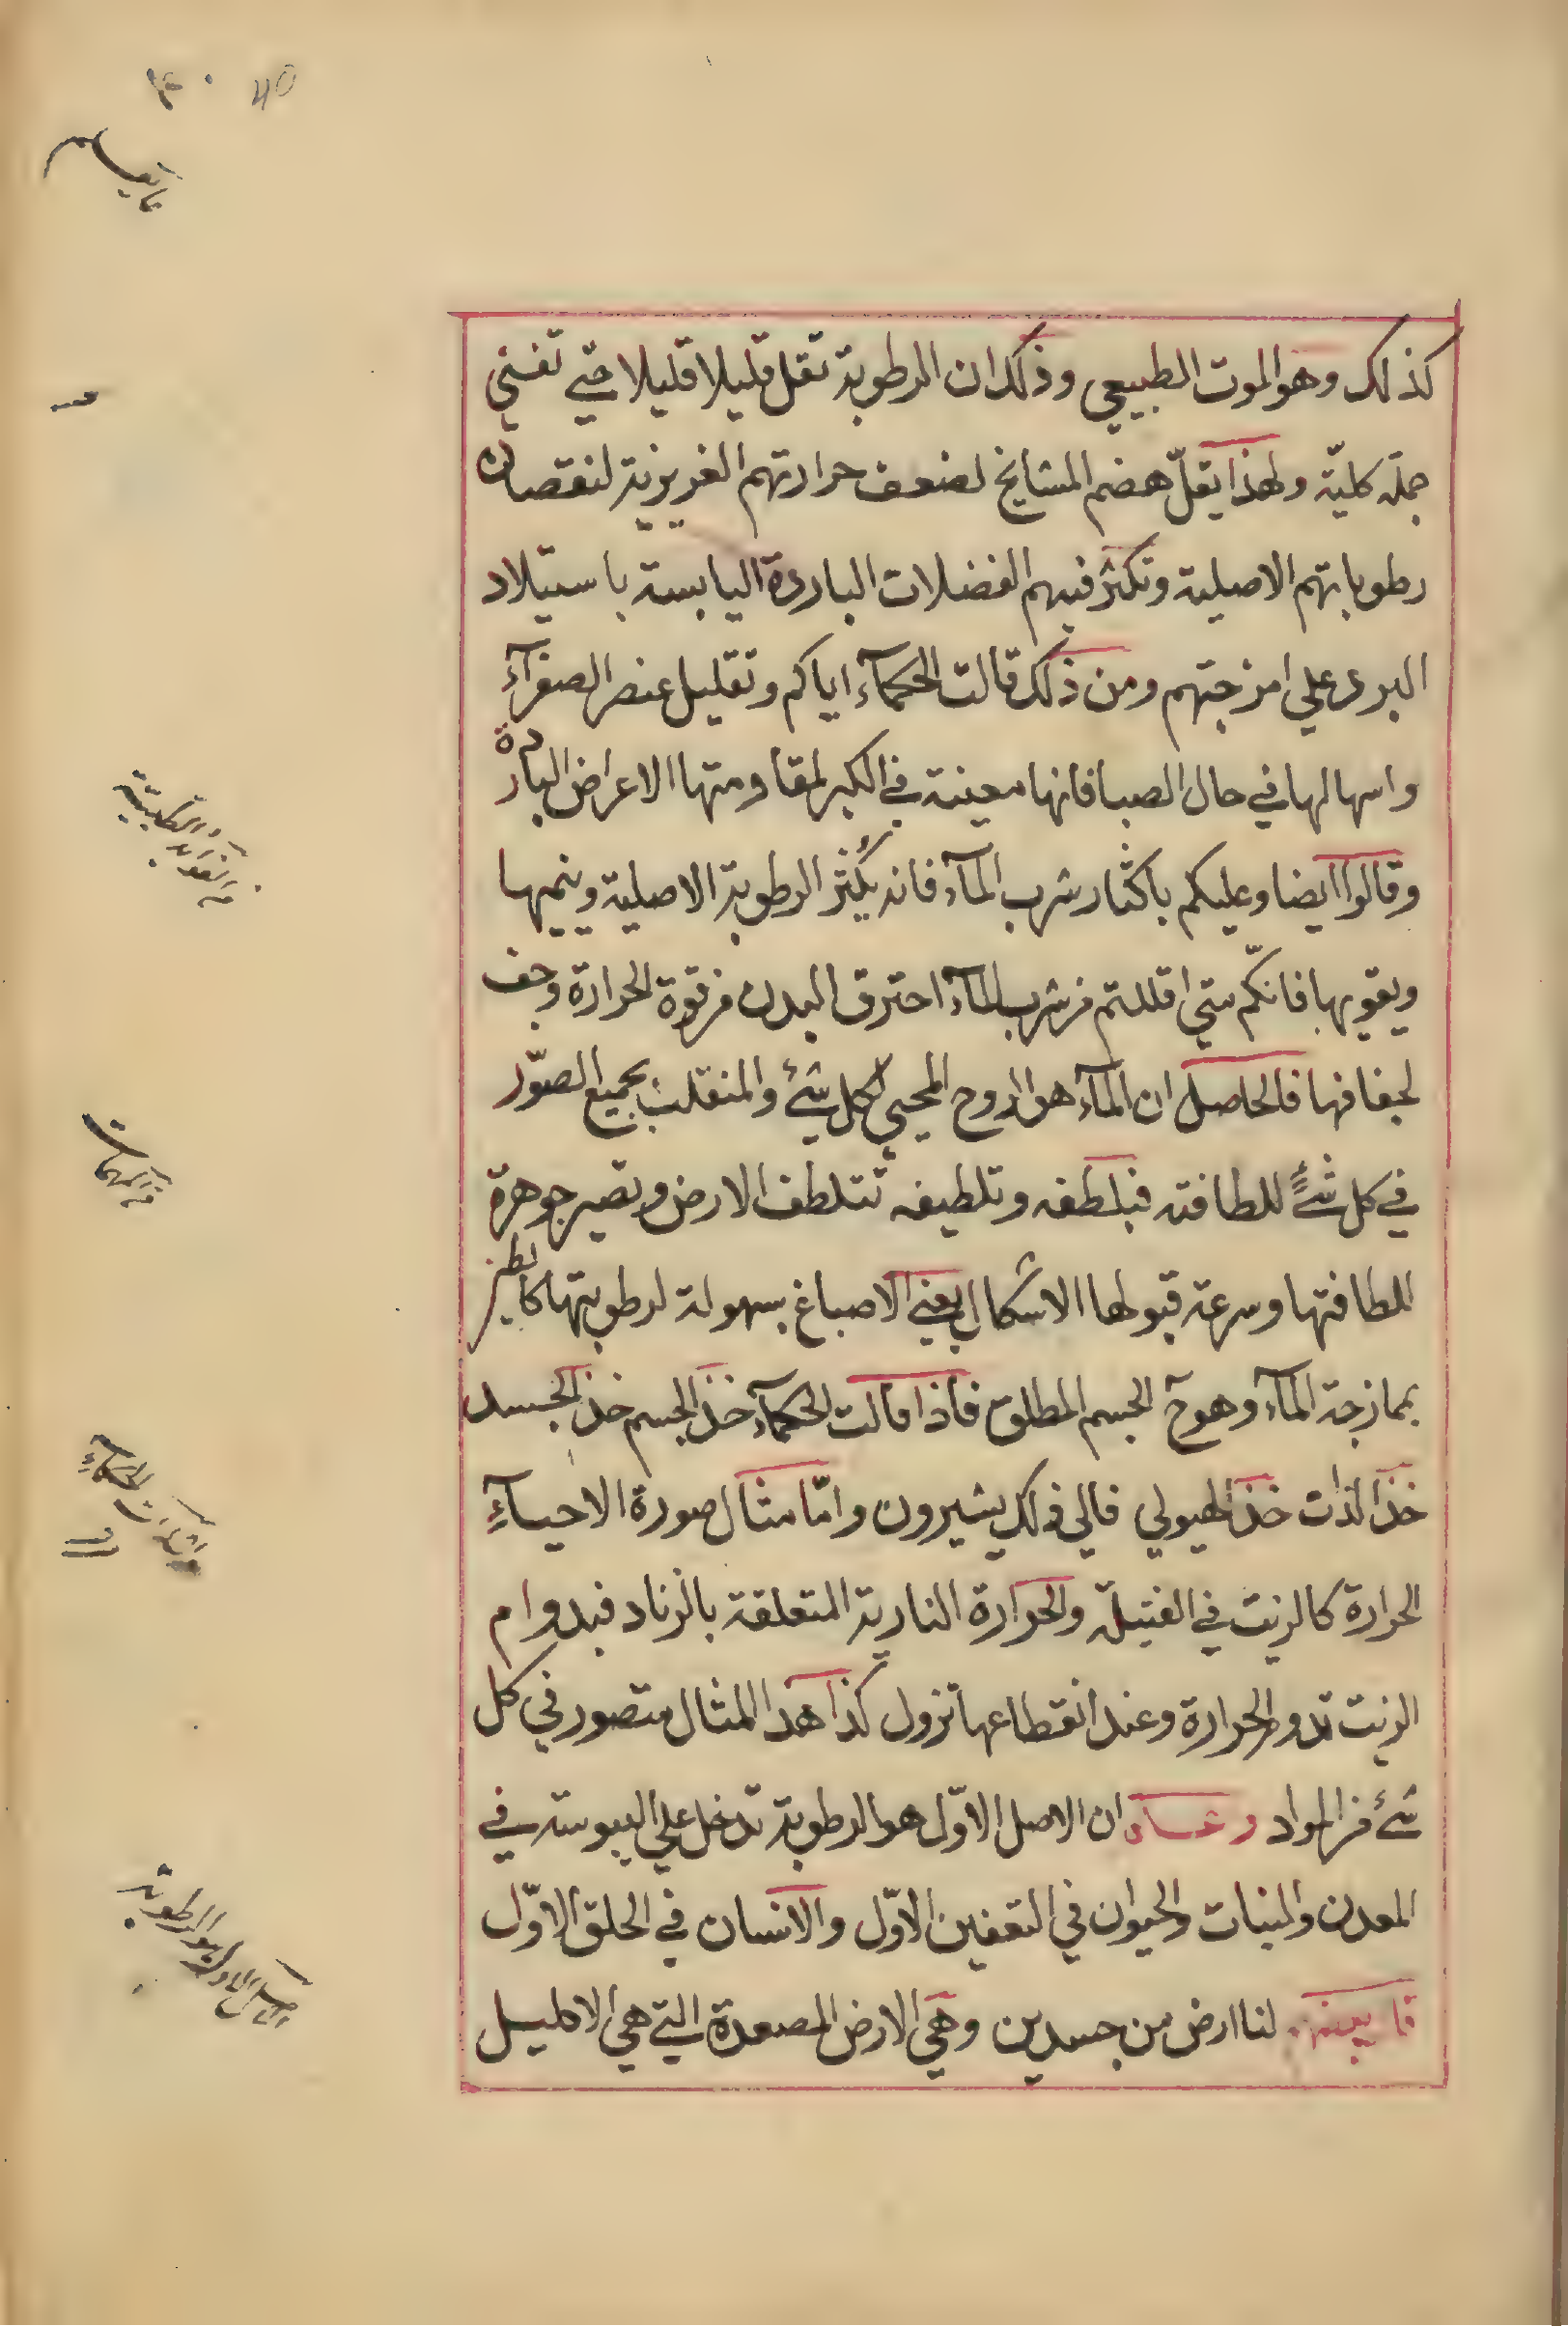 ٤٠ 40
كذلك وهو الموت الطبيعي وذلك ان الرطوبة تقل قليلا قليلا حتي تفني
جملة كليّة ولهذا يقلّ هضم المشايخ لضعف حرارتهم الغريزية لنقصان
رطوباتهم الاصلية وتكثر فيهم الفضلات الباردة اليابسة باستيلاد
البرد علي امزجتهم ومن ذلك قالت الحكمآء اياكم وتقليل عنصر الصفرآء
واسهالها في حال الصبا فانها معينة في الكبر لمقاومتها الاعراض الباردة
وقالوا ايضا وعليكم باكثار شرب المآء فانه يكثر الرطوبة الاصلية وينميها
ويقويها فانكّم متي اقللتم من شرب المآء احترق البدن من قوة الحرارة وجف
لجفافها فالحاصل ان المآء هو الروح المحيي لكل شئ والمنقلب بجميع الصوّر
في كل شئ للطافته فبلطفه وتلطيفه تتلطف الارض وتصير جوهرة
للطافتها وسرعة قبولها الاشكال يعني الاصباغ بسهولة لرطوبتها كالطين
بممازجة المآء وهو ح الجسم المطلق فاذا قالت الحكمآء خذ الجسم خذ الجسد
خذ الذات خذ الهيولي فالي ذلك يشيرون وامّا مثال صورة الاحيآء
الحرارة كالزيت في الفتيلة والحرارة النارية المتعلقة بالزناد فبدوام
الزيت تدوم الحرارة وعند انقطاعها تزول كذا هذا المثال متصور في كل
شئ من المواد ان الاصل الاوّل هو الرطوبة تدخل علي اليبوسة في
المعدن والنبات والحيوان في التعفين الاوّل والانسان في الخلق الاوّل
لنا ارض من جسدين وهي الارض المصعدة التي هي الاكليل
والطبيّة
من الفوائد
من المهمات
اشارات الحكمآء
الاصل الاول هو الرطوبة